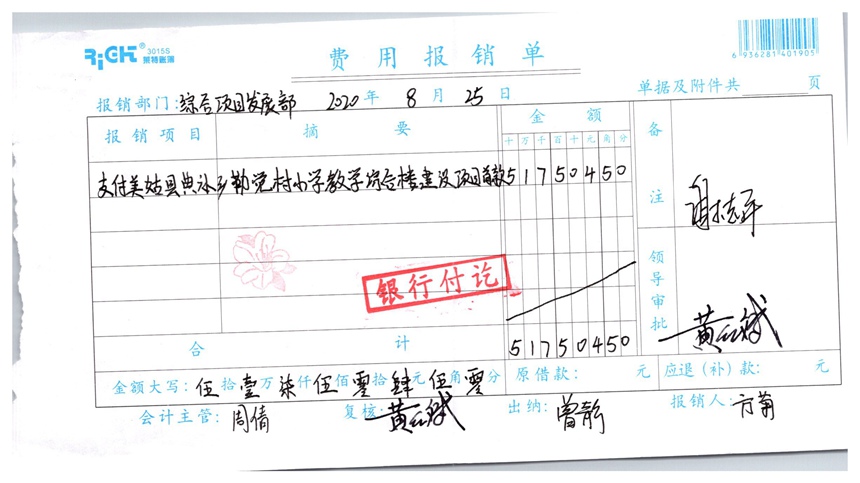 RiCH® 3015S 莱特账簿
费用报销单
6 936281 401905
报销部门:综合项目发展部 2020年 8月 25日 单据及附件共 页
报销项目 摘要 金额 备注
十万千百十元角分
支付美姑县典补乡勒觉村小学教学综合楼建设项目首款 51750450
银行付讫
领导审批
合计 51750450
金额大写:伍拾壹万柒仟伍佰零拾肆元伍角零分 原借款: 元 应退(补)款: 元
会计主管:周倩 复核: 出纳:曾静 报销人:方菊